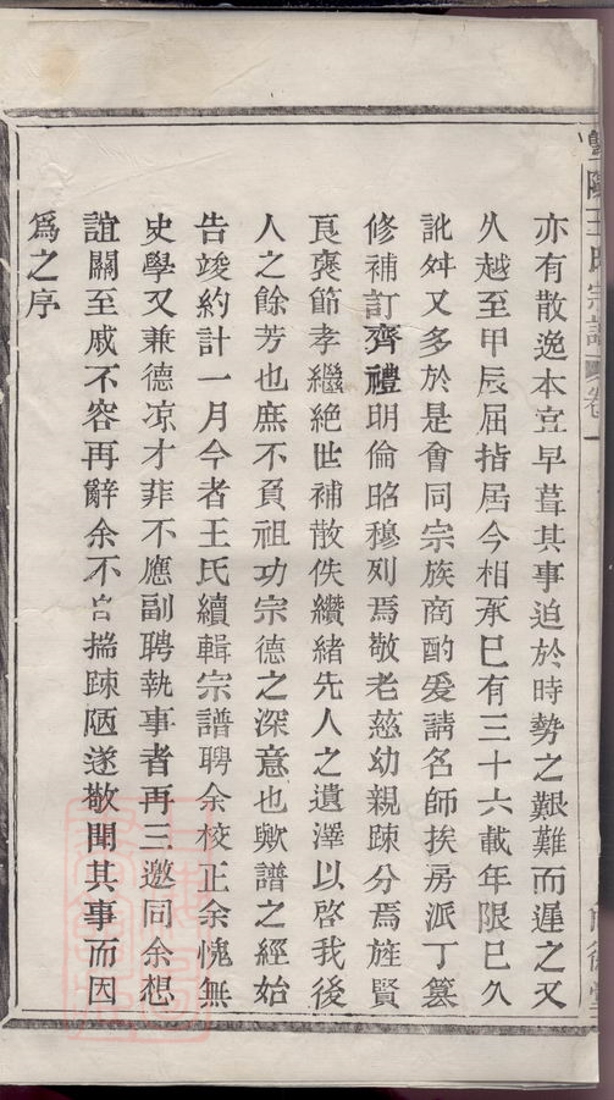 豐陽王氏宗譜 卷一
亦有散逸本宜早葺其事迫於時勢之艱難而遲之又
久越至甲辰屈指居今相承已有三十六載年限已久
訛舛又多於是會同宗族商酌爰請名師挨房派丁篡
修補訂齊禮明倫昭穆列焉敬老慈幼親踈分焉旌賢
良褒節孝繼絕世補散佚纘緒先人之遺澤以啓我後
人之餘芳也庶不負祖功宗德之深意也歟譜之經始
告竣約計一月今者王氏續輯宗譜聘余校正余愧無
史學又兼德凉才菲不應副聘執事者再三邀同余想
誼關至戚不容再辭余不自揣踈陋遂敬聞其事而因
爲之序